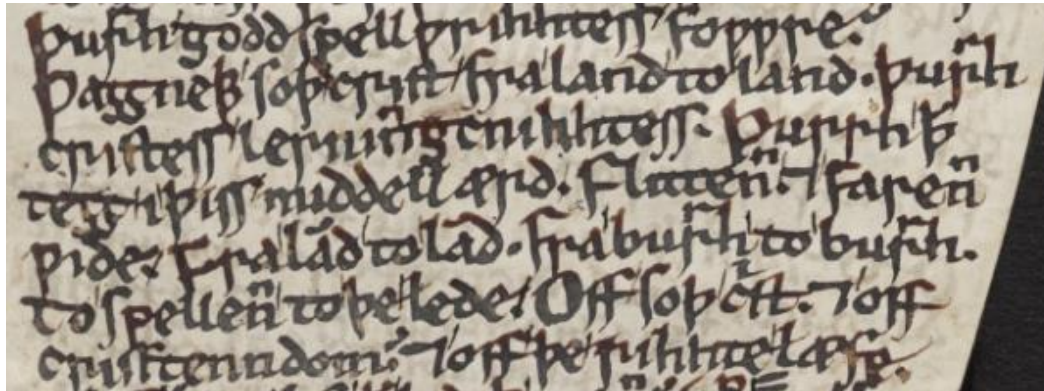 Þurrh goddspellƿrihhtess foƿƿre.
Ƿaȝȝneþþ soþ crist fra land to land. þurrh
cristess lerninngcnihhtess. Þurrh þ̄
teȝȝ i þiss middellærd. Flittenn̄. ⁊ farenn̄
ƿide. Fra lād to lād. fra burrh to burrh.
To spellenn̄ to þe lede. Off soþ cr̄ist. ⁊ off
crisstenndom. ⁊ off þe rihhte læfe.